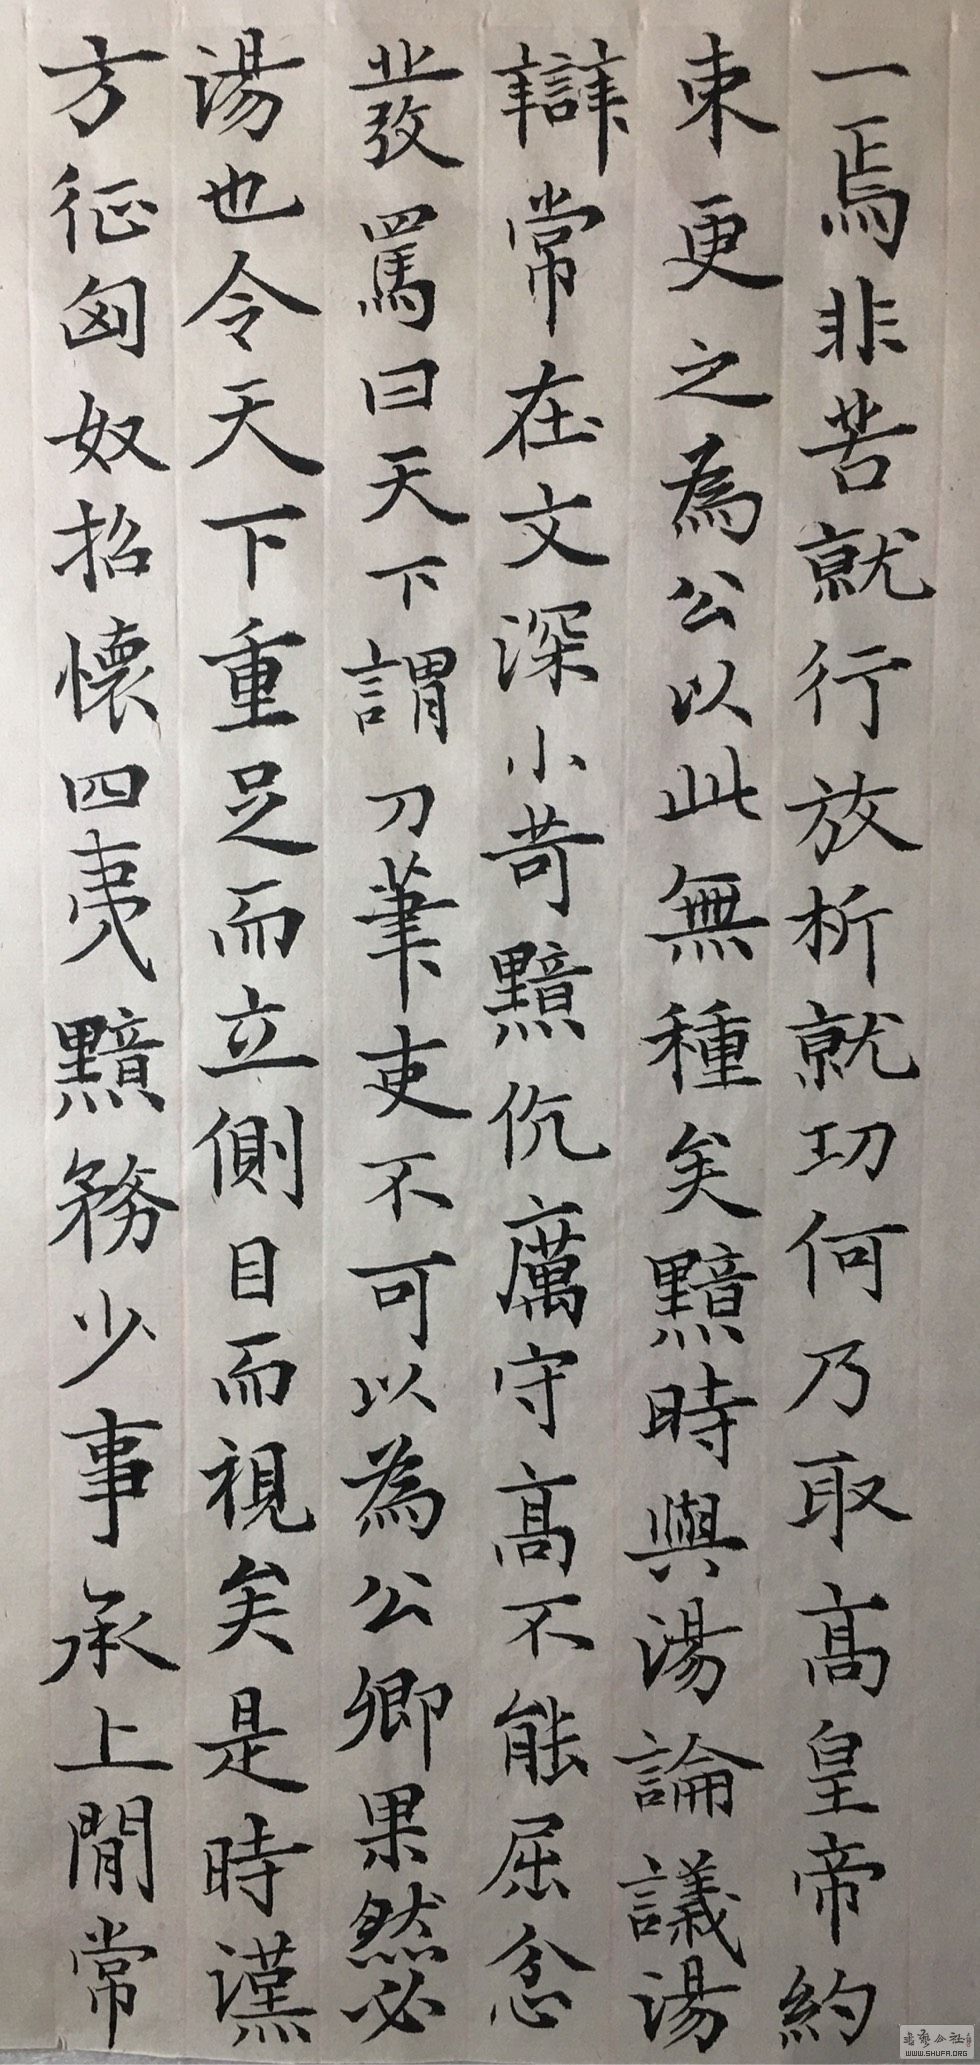 一焉非苦就行放析就功何乃取髙皇帝約
束更之為公以此無種矣黯時與湯論議湯
辯常在文深小苛黯伉厲守髙不能屈忿
發罵曰天下謂刀筆吏不可以為公卿果然必
湯也令天下重足而立側目而視矣是時漢
方征匈奴招懷四夷黯務少事承上閒常
WWW.SHUFA.ORG